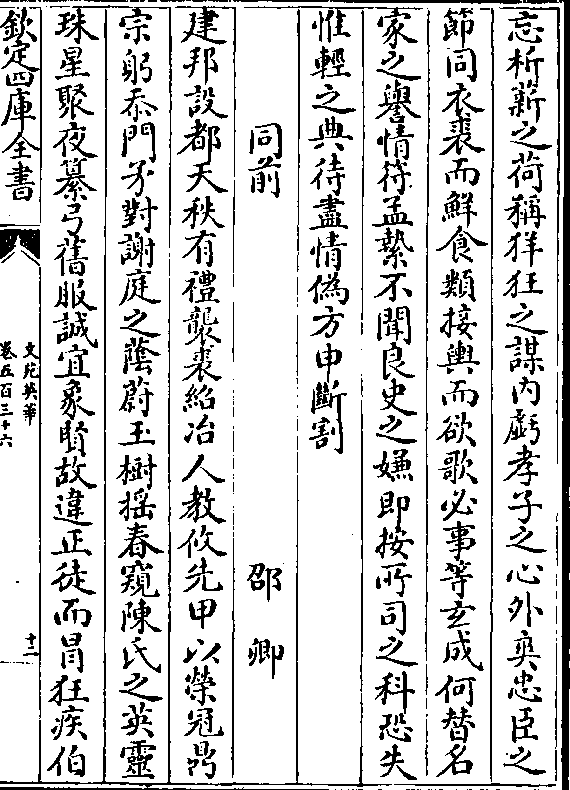 忘析薪之荷稱徉狂之謀内虧孝子之心外爽忠臣之
節同衣裘而鮮食類接輿而欲歌必事等玄成何替名
家之譽情符孟縶不聞良史之嫌即按所司之科恐失
惟輕之典待盡情偽方申斷割
同前 邵卿
建邦設都天秩有禮襲裘紹冶人教攸先甲以榮冠昺
宗躬忝門子對謝庭之蔭蔚玉樹揺春窺陳氏之英靈
珠星聚夜纂弓舊服誠宜象賢故違正徒而冒狂疾伯
欽定四庫全書
文苑英華
卷五百三十六
十二